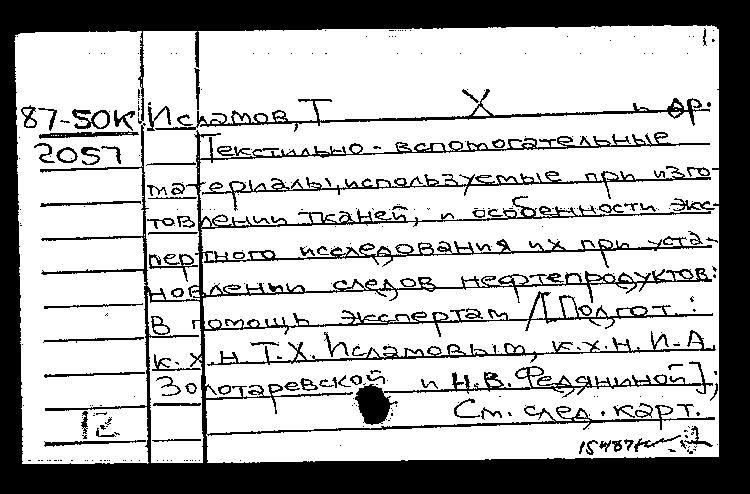 1.
87-50К Исламов, Т Х и др.
2057 Текстильно-вспомогательные
материалы, используемые при изго-
товлении тканей, и особенности экс-
пертного исследования их при уста-
новлении следов нефтепродуктов:
В помощь экспертам / [Подгот.:
к.х.н Т.Х. Исламовым, к.х.н. И.А.
Золотаревской и Н.В. Федяниной];
12 См. след. карт.